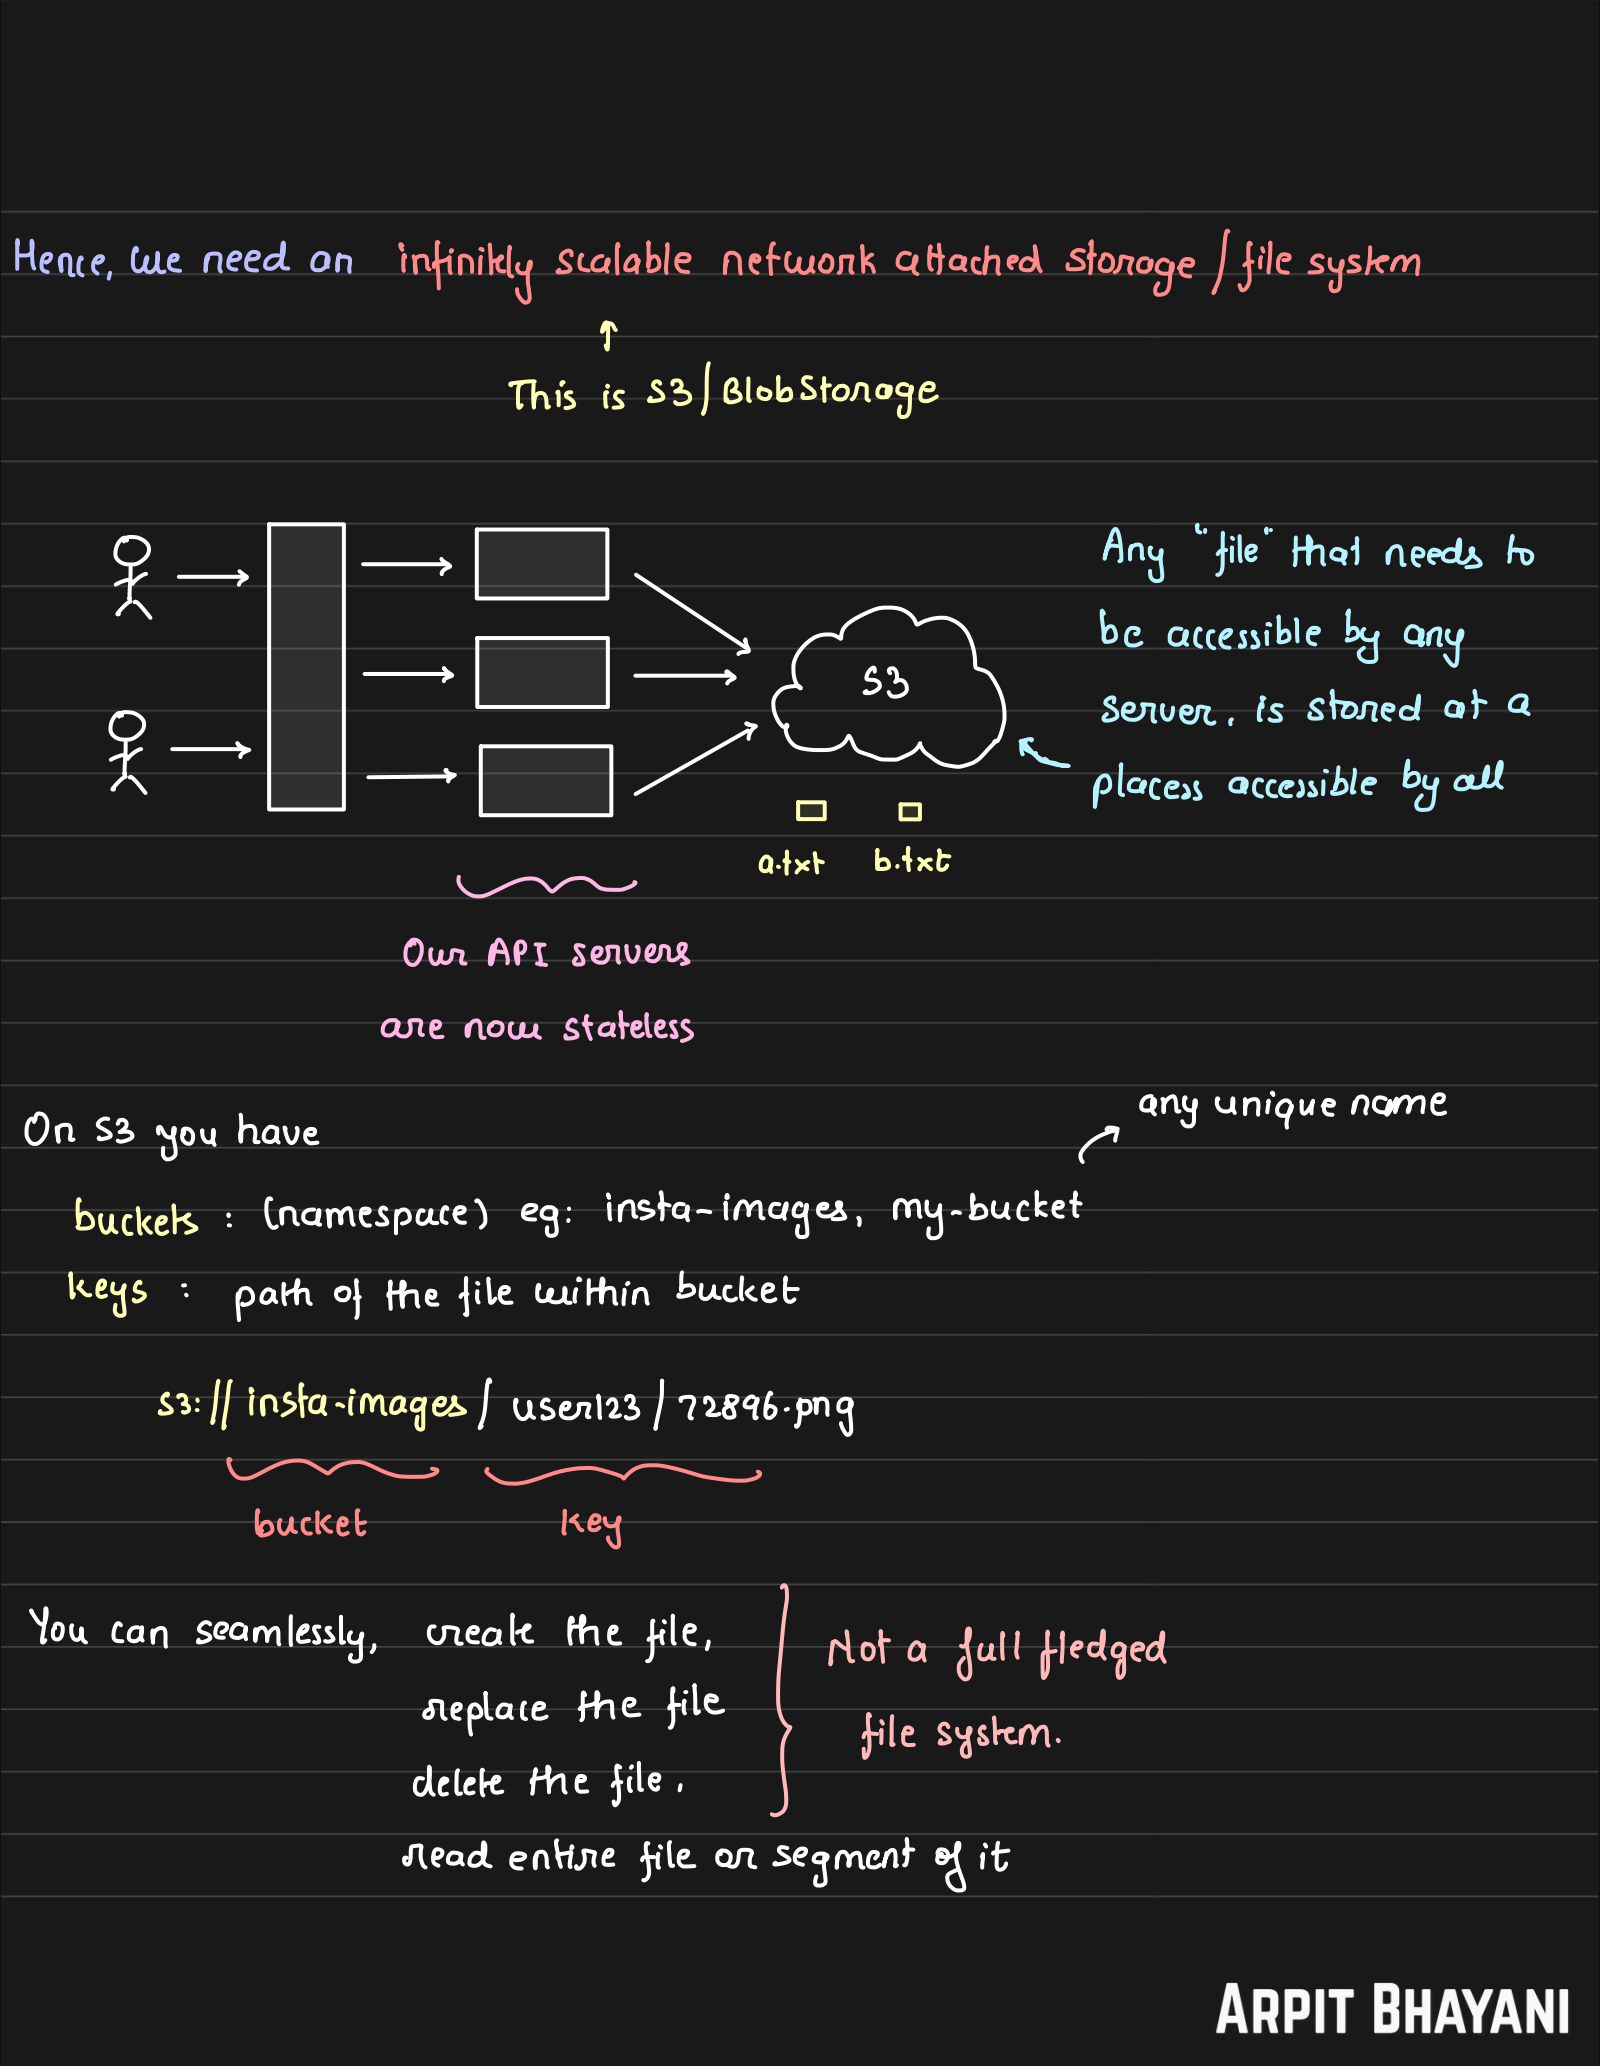 Hence, we need an infinitely scalable network attached storage / file system
This is S3/BlobStorage
Any "file" that needs to
be accessible by any
server, is stored at a
placess accessible by all
S3
a.txt b.txt
Our API servers
are now stateless
any unique name
On S3 you have
buckets : (namespace) eg: insta-images, my-bucket
keys : path of the file within bucket
s3://insta-images/user123/72896.png
bucket key
You can seamlessly, create the file,
replace the file
delete the file.
read entire file or segment of it
Not a full fledged
file system.
ARPIT BHAYANI